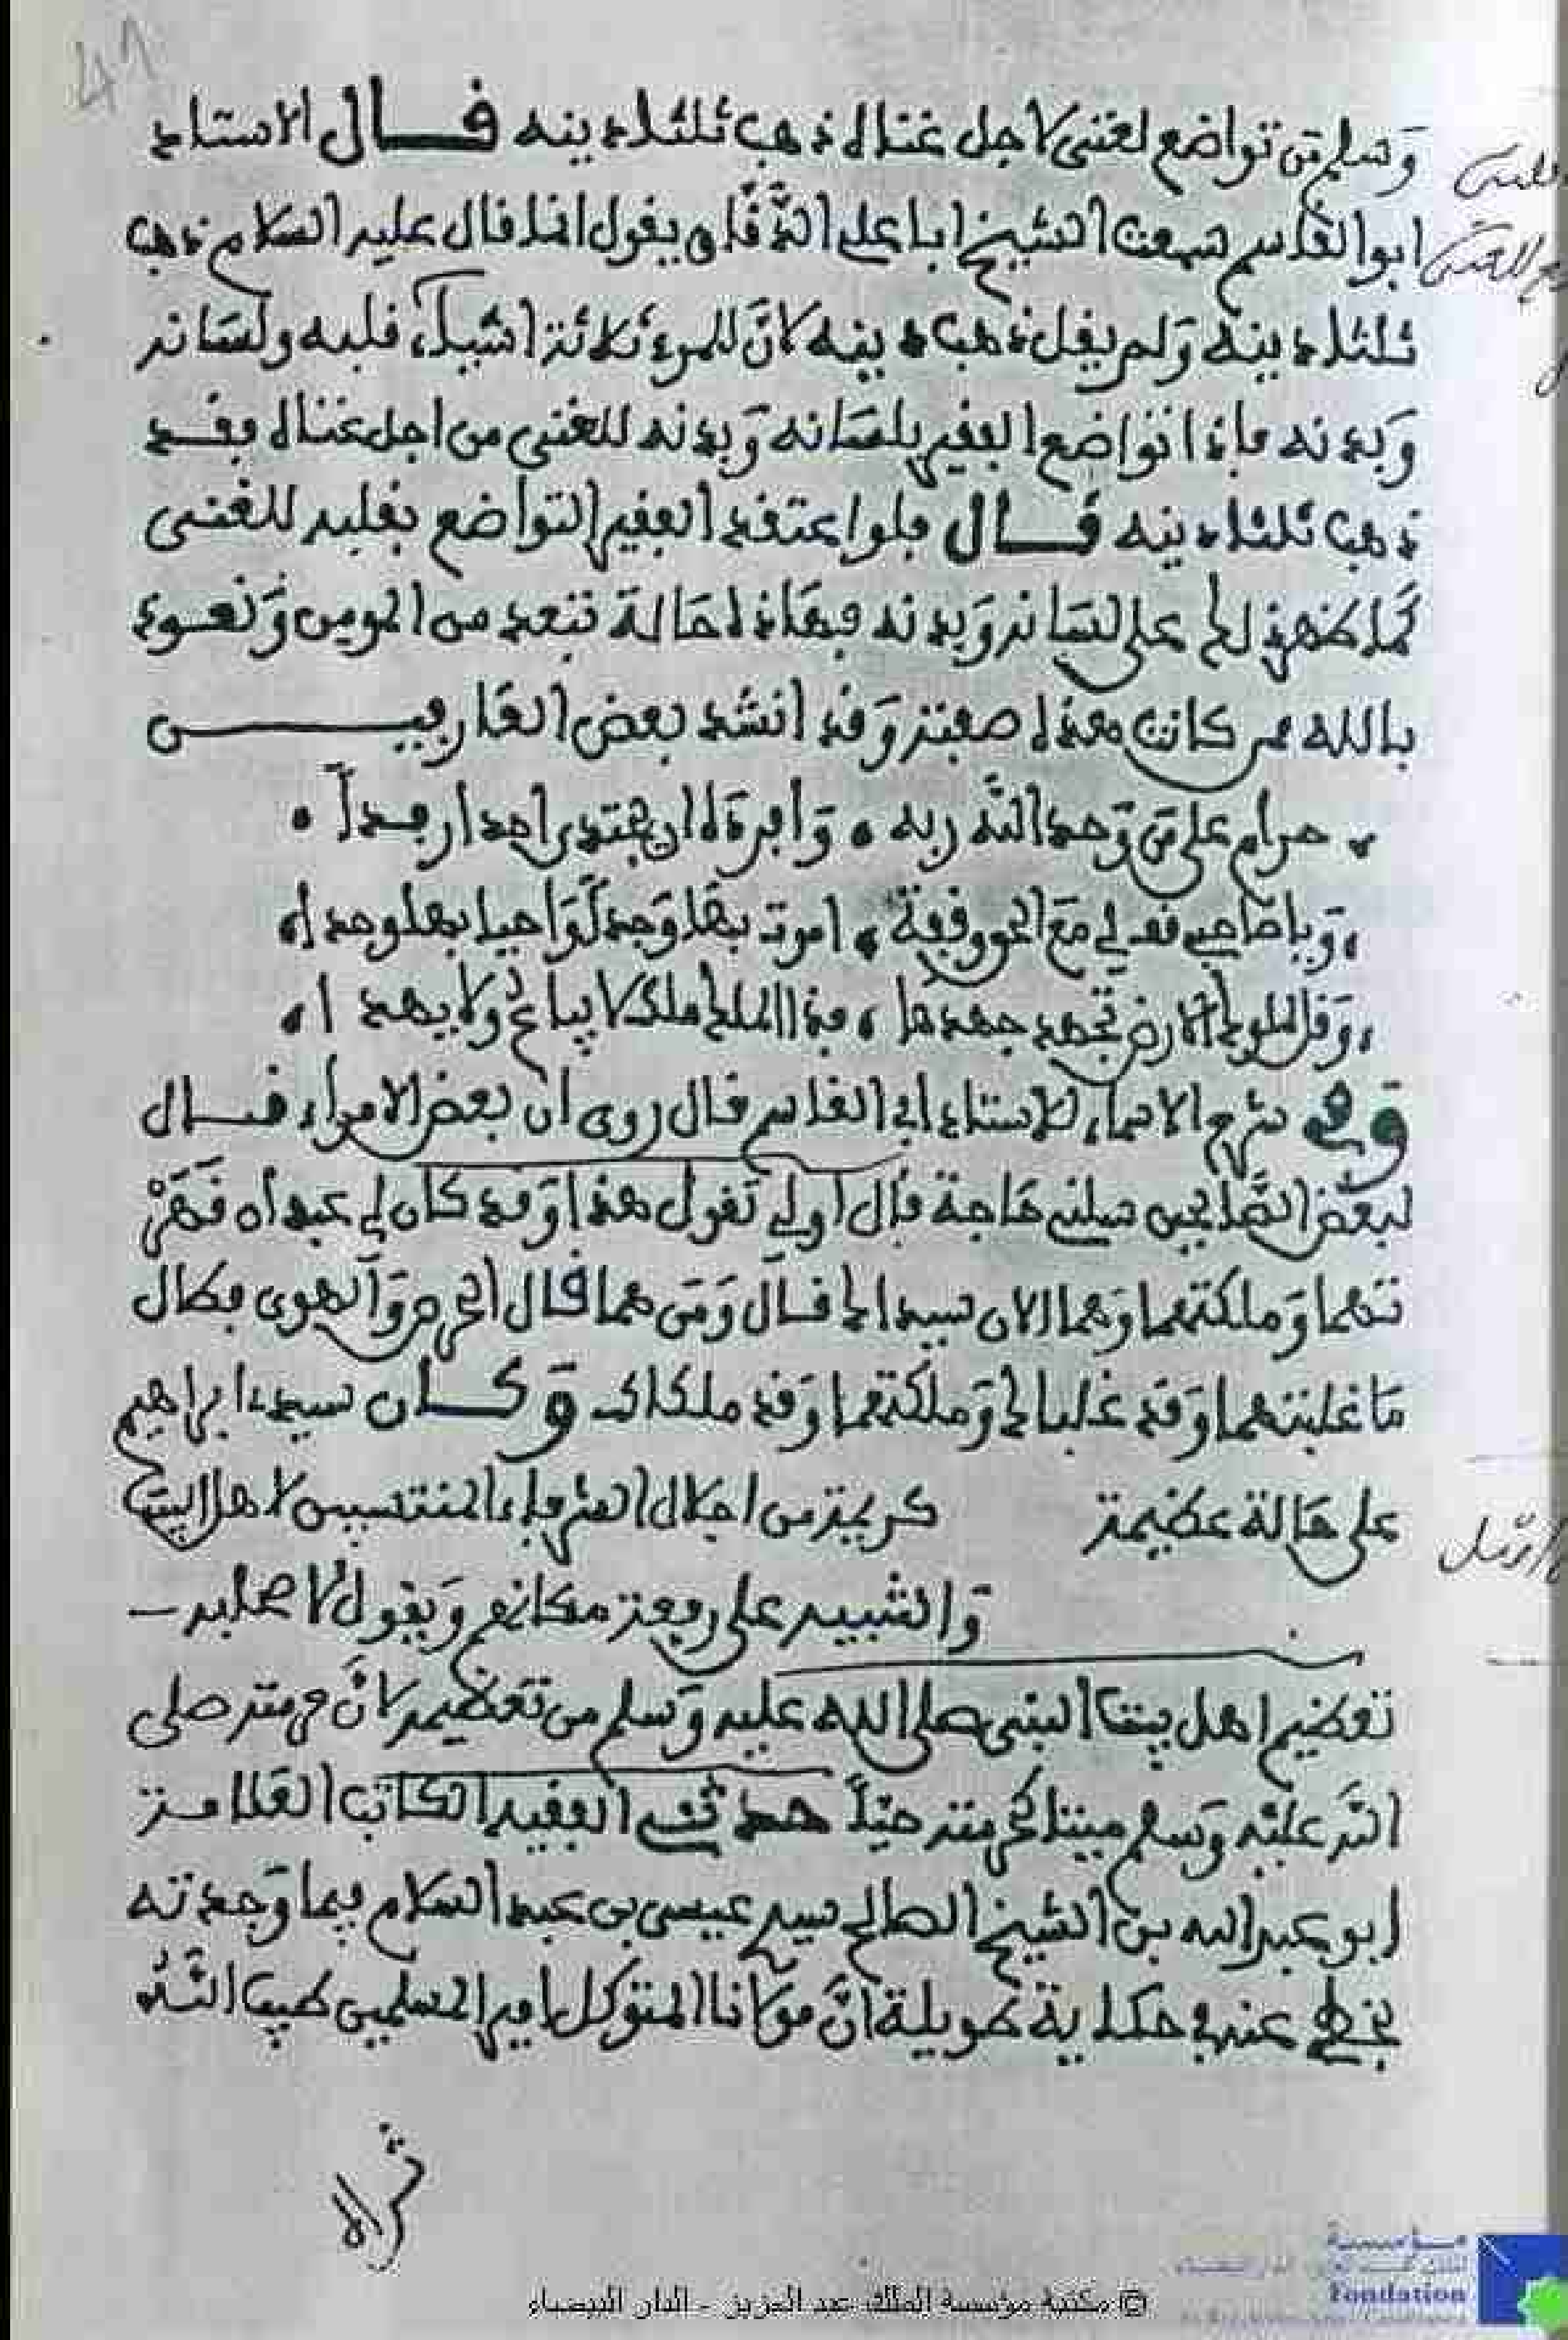 41
وَسلم مَن تواضع لغني لاجل غناه ذهب ثلثا دينه قال الاستاذ
ابو القاسم سمعت الشيخ ابا علي الدَّقَّاق يقول انما قال عليه السلام ذهب
ثلثا دينه وَلم يقل ذهب دينه لانَّ للمرء ثلاثة اشياء قلبه ولسَانه
وَبدنه فاذا تواضع الفقير بلسَانه وَبدنه للغني من اجل غناه فقد
ذهب ثلثا دينه قال فلو اعتقد الفقير التواضع بقلبه للغني
كمَا ظهر ذلك على لسَانه وَبدنه فهَاذه حَالة تبعد من المومن وَنعوذ
بالله ممن كانت هذه صفته وَقد انشد بعض العَارفيـــن
حرام على مَن وَحد اللَّه ربه وَافرده ان يجتدي احدا رفدا
وَيا صَاحبي قف لي مَع الحق وقفة اموت بهَا وَجدا وَاحيا بها وجدا
وَقل لملوك الارض تجهد جهدها فذا الملك ملك لا يباع ولا يهدا
وفي شرح الاسماء للاستاذ ابي القاسم قال روى ان بعض الامراء قــال
لبعض الصَّالحين سلني حَاجة قال اولي تقول هذا وَقد كان لي عبدان قهَرْ
تهما وَملكتهما وَهما الان سيداك قال وَمَن هما قال الحرص وَالهوى فكال
مَا غلبتهما وَقد غلباك وَملكتهما وَقد ملكاك وَكـان سيدي ابراهيم
على حَالة عظيمة كريمة من اجلال الشرفاء المنتسبين لاهل البيت
وَالتنبيه على رفعة مكانهم وَيقول لاصحابه
تعظيم اهل بيت النبي صلى الله عليه وَسلم من تعظيمه لانَّ حرمته صلى
اللَّه عليْه وَسلم ميتا كحرمته حيّاً حدثني الفقيه الكاتب العَلامة
ابو عبد الله بن الشيخ الصالح سيدي عيسى بن عبد السلام فيما وَجدته
بخطه عنه في حكاية طويلة انَّ مَولانا المتوكل امير المسلمين طيب اللَّه
ثراه
© مكتبة مؤسسة الملك عبد العزيز - الدار البيضاء
Fondation